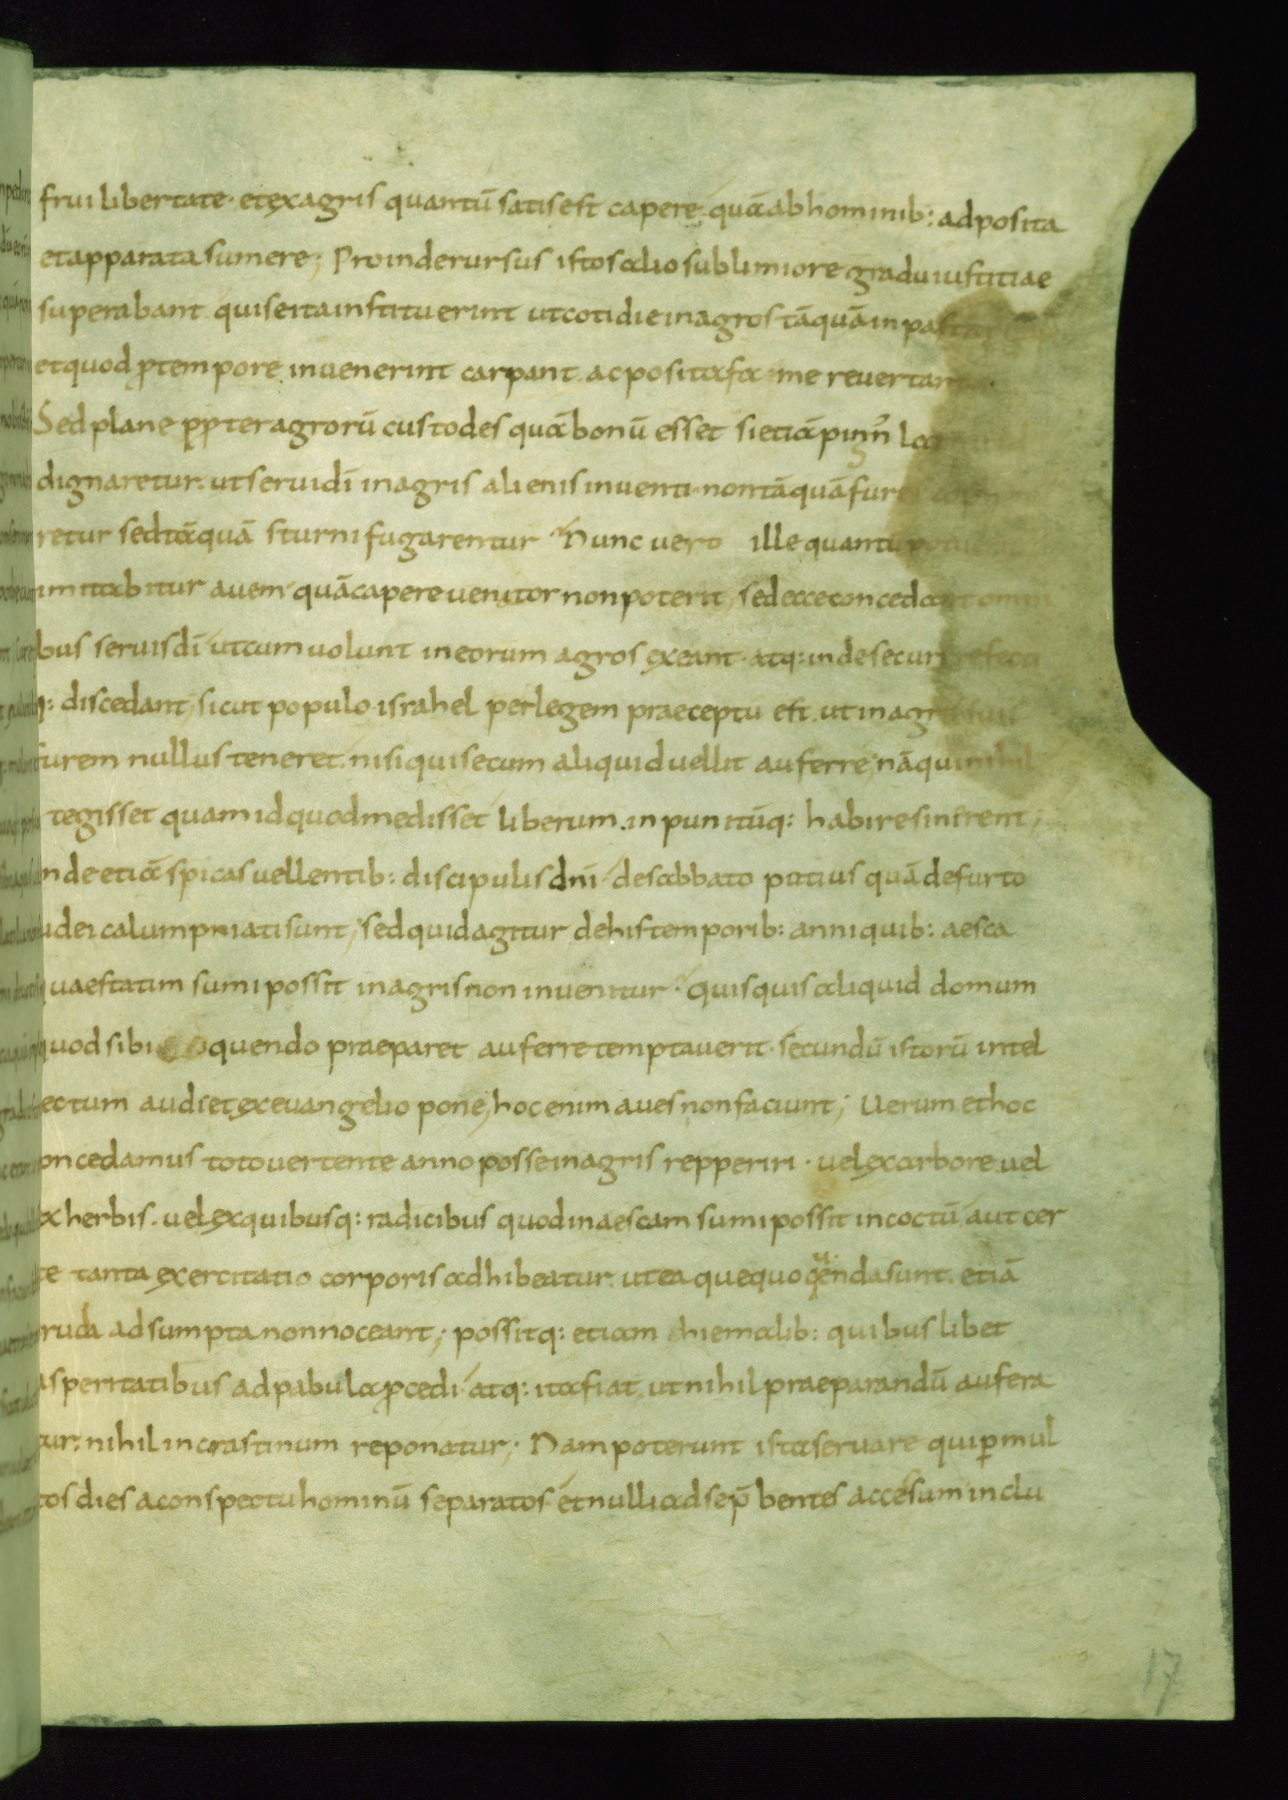 frui libertate · et ex agris quantū satis est capere · quā ab hominib: adposita
et apparata sumere; Proinde rursus istos alio sublimiore gradu iustitiae
superabant qui se ita instituerint ut cotidie in agros tāquā in
et quod ꝓ tempore invenerint carpant · ac posita fame
Sed plane ꝓpter agrorū custodes quā bonū esset si etiā
dignaretur · ut serui dī in agris alienis inventi · non tāquā
retur sed tāquā sturni fugarentur · Nunc vero ille
imitabitur auem · quā capere uenator non poterit, sed ecce
bus seruis dī ut cum uolunt in eorum agros exeant · atq: inde
q: discedant, sicut populo israhel per legem praeceptū est · ut in
furem nullus teneret · nisi qui secum aliquid uellit auferre, nā qui
tegisset quam id quod medisset liberum · inpunitūq: habire sinirent;
nde etiā spicas uellentib: discipulis dn̄i · de sabbato potius quā de furto
udei calumpniati sunt, sed quid agitur de his temporib: anni quib: aesca
uae statim sumi possit in agris non invenitur · Quisquis aliquid domum
quod sibi quendo praeparet auferre temptauerit · secundū istorū intel
ectum audiet ex evangelio pone, hoc enim aues non faciunt; Uerum et hoc
oncedamus toto uertente anno posse in agris repperiri · uel ex arbore uel
ex herbis · uel ex quibusq: radicibus quod in aescam sumi possit incoctū aut cer
te tanta exercitatio corporis adhibeatur · ut ea que quoqenda sunt · etiā
ruda adsumpta non noceant; possitq: etiam hiemalib: quibus libet
asperitatibus ad pabula ꝓcedi · atq: ita fiat · ut nihil praeparandū aufera
tur · nihil in crastinum reponatur; Nam poterunt ista seruare qui ꝑ mul
tos dies a conspectu hominū separatos · et nulli ad se p̄bentes accesum inclu
17